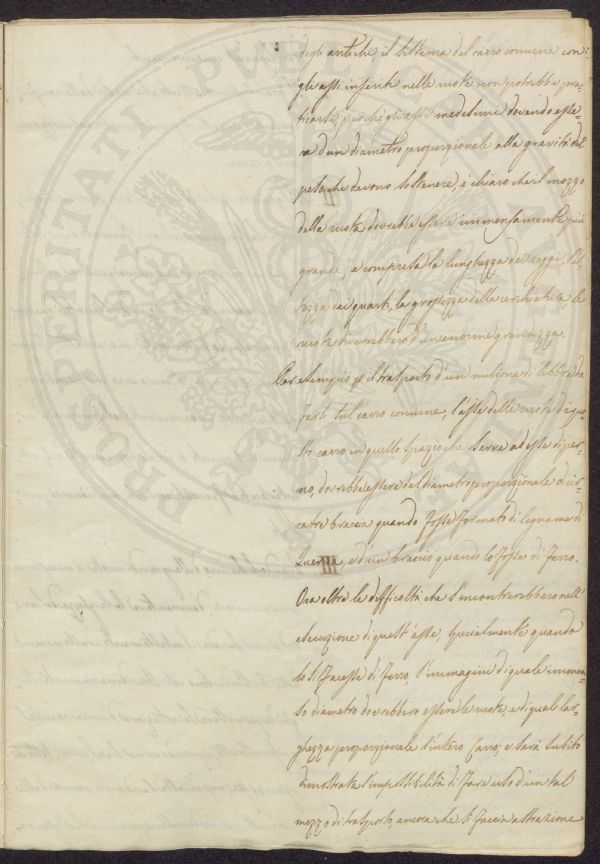 degli antichi il sistema del carro comune con
gli assi inseriti nelle ruote non potrebbe pra=
ticarsi, perché gli assi medesimi dovendo esse=
re d'un diametro proporzionale alla gravità del
peso che devono sostenere, è chiaro che il mozzo
della ruota dovrebbe essere immensamente più
grande, e compresa la lunghezza dei raggi, l'al=
tezza dei quarti, la grossezza della cerchiatura, le
ruote diverrebbero d'un'enorme grandezza.
Per esempio p il trasporto d'un milione di libbre da
farsi sul carro comune, l'asse delle ruote di que=
sto carro in quello spazio che serve ad esse di per=
no, dovrebbe essere del diametro proporzionale di cir=
ca tre braccia quando fosse formato di legname di
Quercia, e d'un braccio quando lo fosse di ferro.
Ora oltre le difficoltà che s'incontrerebbero nell'
esecuzione di quest'asse, specialmente quando
lo si facesse di ferro, s'immagini di quale immen=
so diametro dovrebbero essere le ruote, e di qual lar=
ghezza proporzionale l'intero Carro; e sarà subito
dimostrata l'impossibilità di fare uso d'un tal
mezzo di trasporto, ancora che si faccia astrazione
PROSPERITATI PUBLICAE